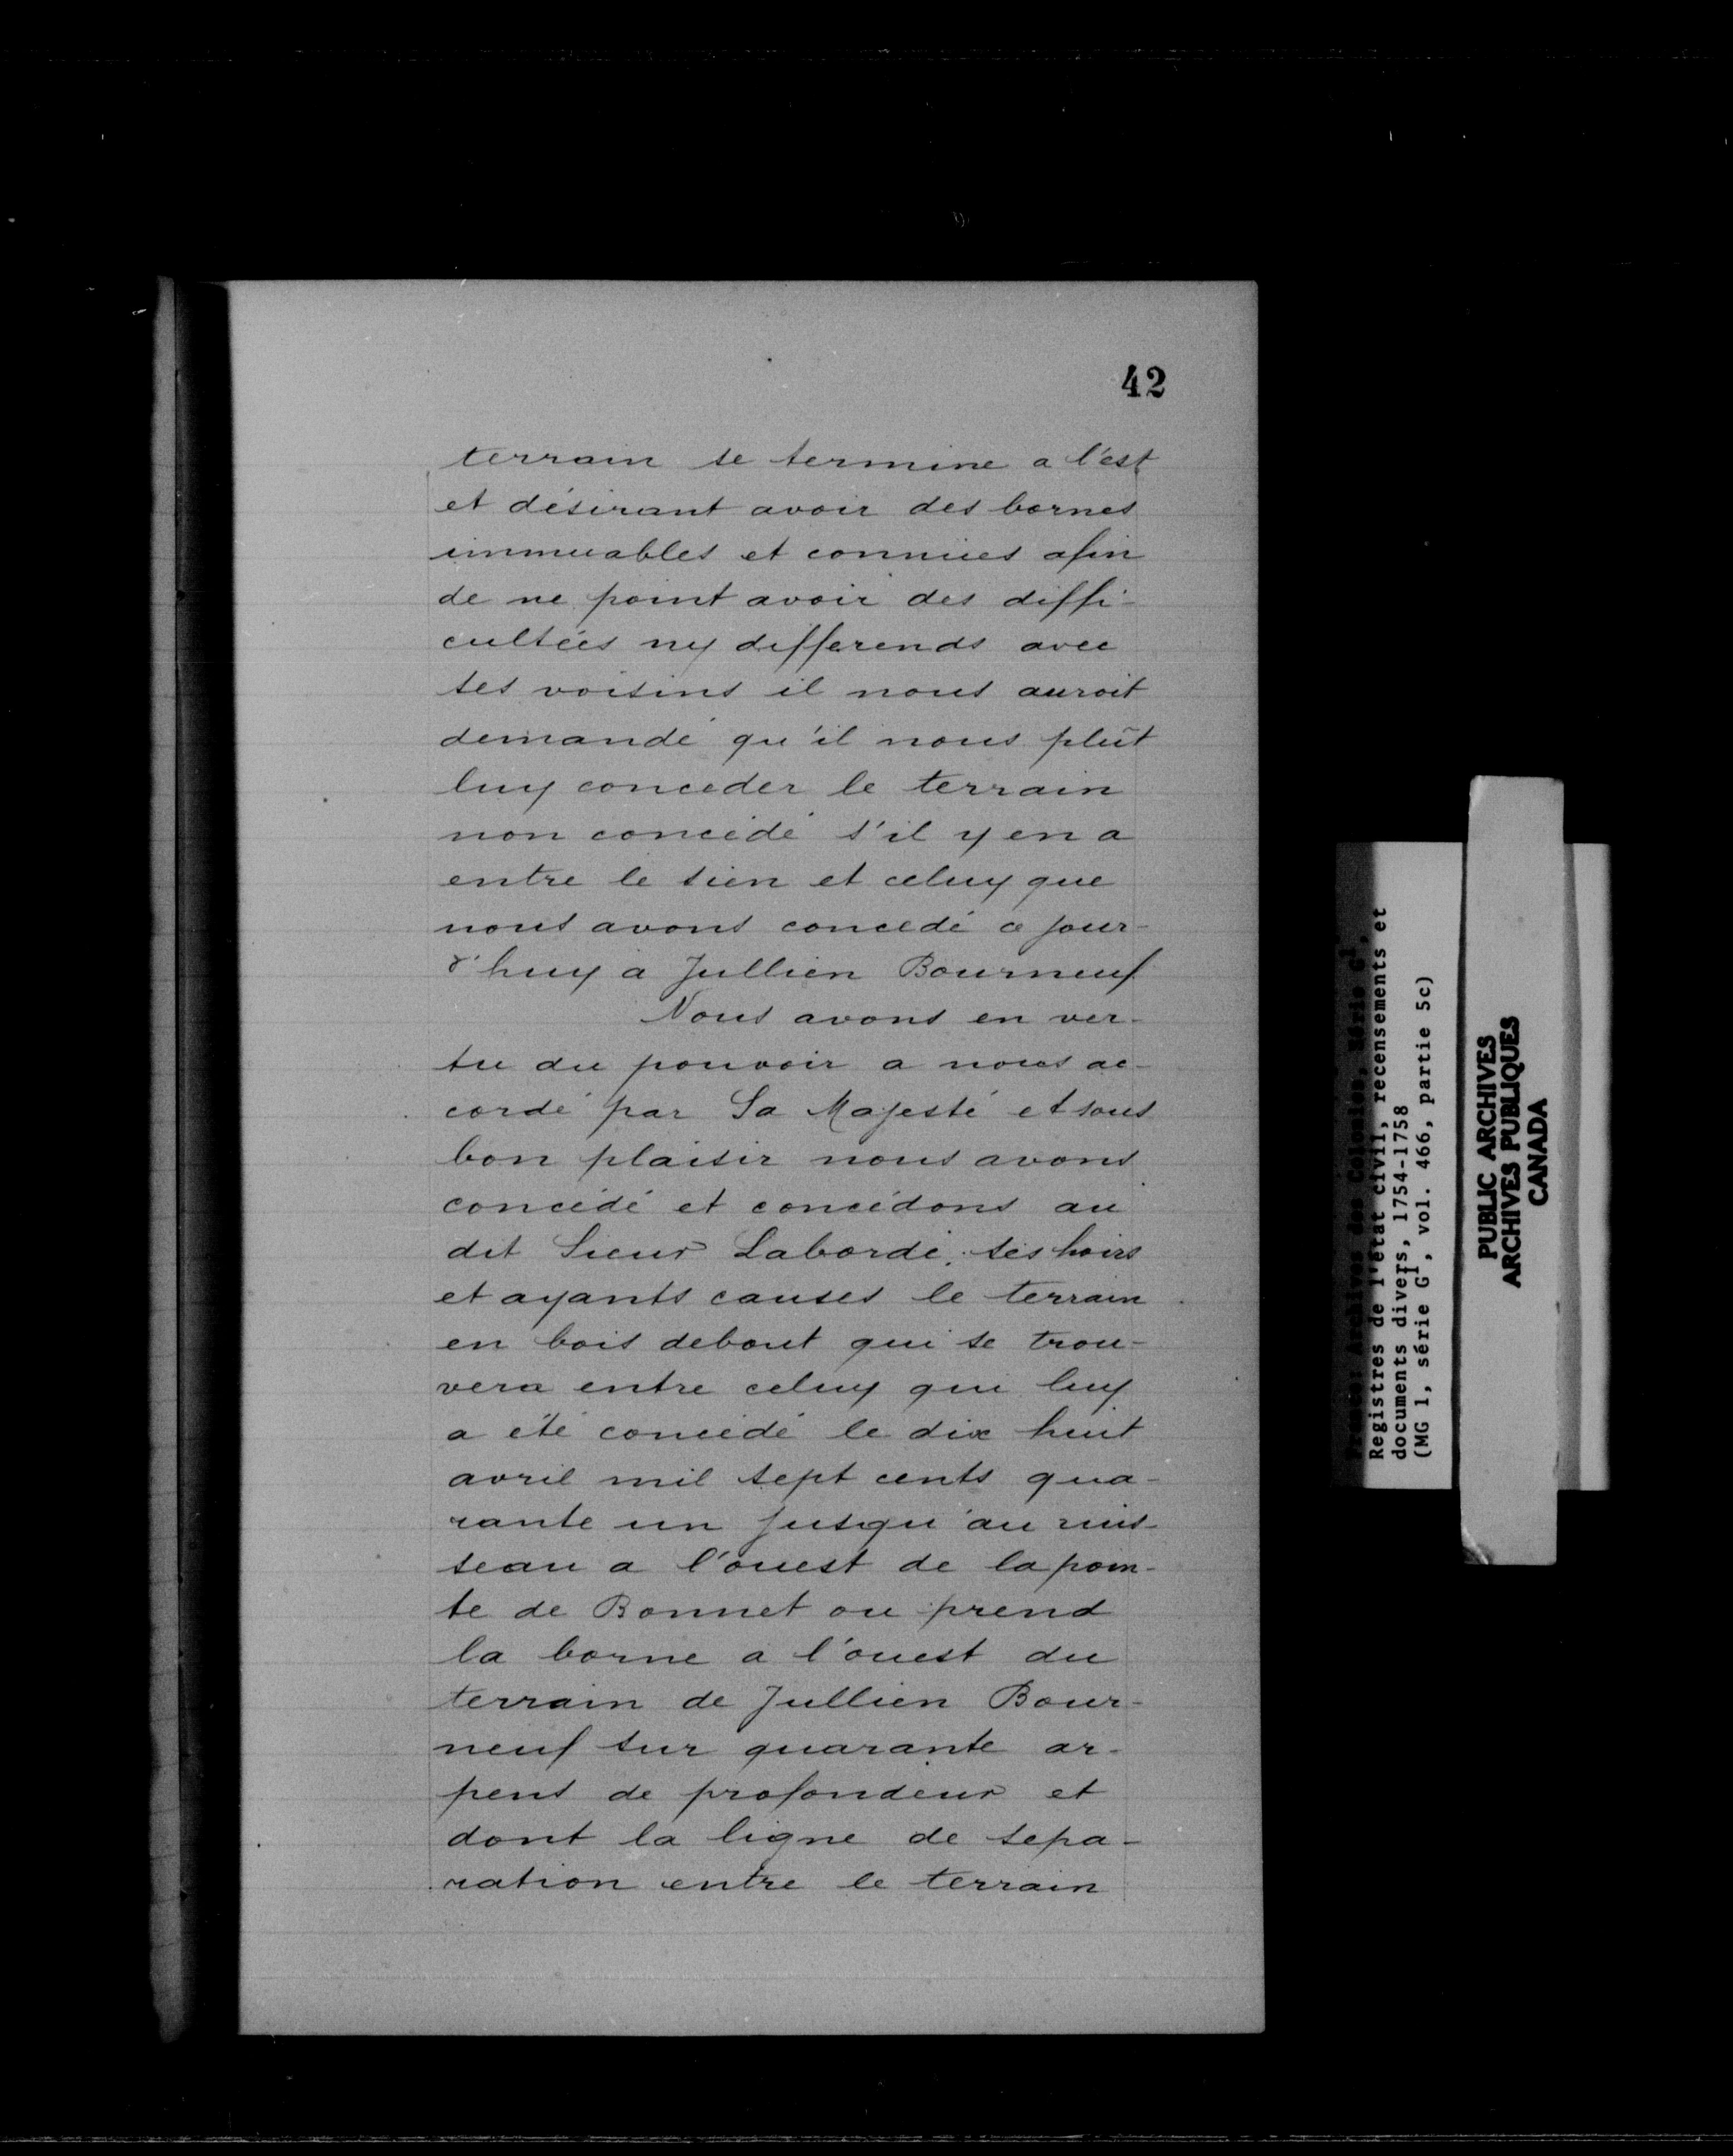 42
terrain se termine a l'est
et désirant avoir des bornes
immuables et connües afin
de ne point avoir des diffi-
cultées ny differends avec
ses voisins il nous auroit
demandé qu'il nous plût
luy conceder le terrain
non concédé s'il y en a
entre le sien et celuy que
nous avons concédé ce jour-
d'huy a Jullien Bourneuf
Nous avons en ver-
tu du pouvoir a nous ac-
cordé par Sa Majesté et sous
bon plaisir nous avons
concédé et concédons au
dit Sieur Laborde, ses hoirs
et ayants causes le terrain
en bois debout qui se trou-
vera entre celuy qui luy
a été concédé le dix huit
avril mil sept cents qua-
rante un jusqu'au ruis-
seau a l'ouest de la poin-
te de Bonnet ou prend
la borne a l'ouest du
terrain de Jullien Bour-
neuf sur quarante ar-
pens de profondeur et
dont la ligne de sepa-
ration entre le terrain
Archives des Colonies, Série G1,
Registres de l'état civil, recensements et
documents divers, 1754-1758
(MG 1, série G1, vol. 466, partie 5c)
PUBLIC ARCHIVES
ARCHIVES PUBLIQUES
CANADA